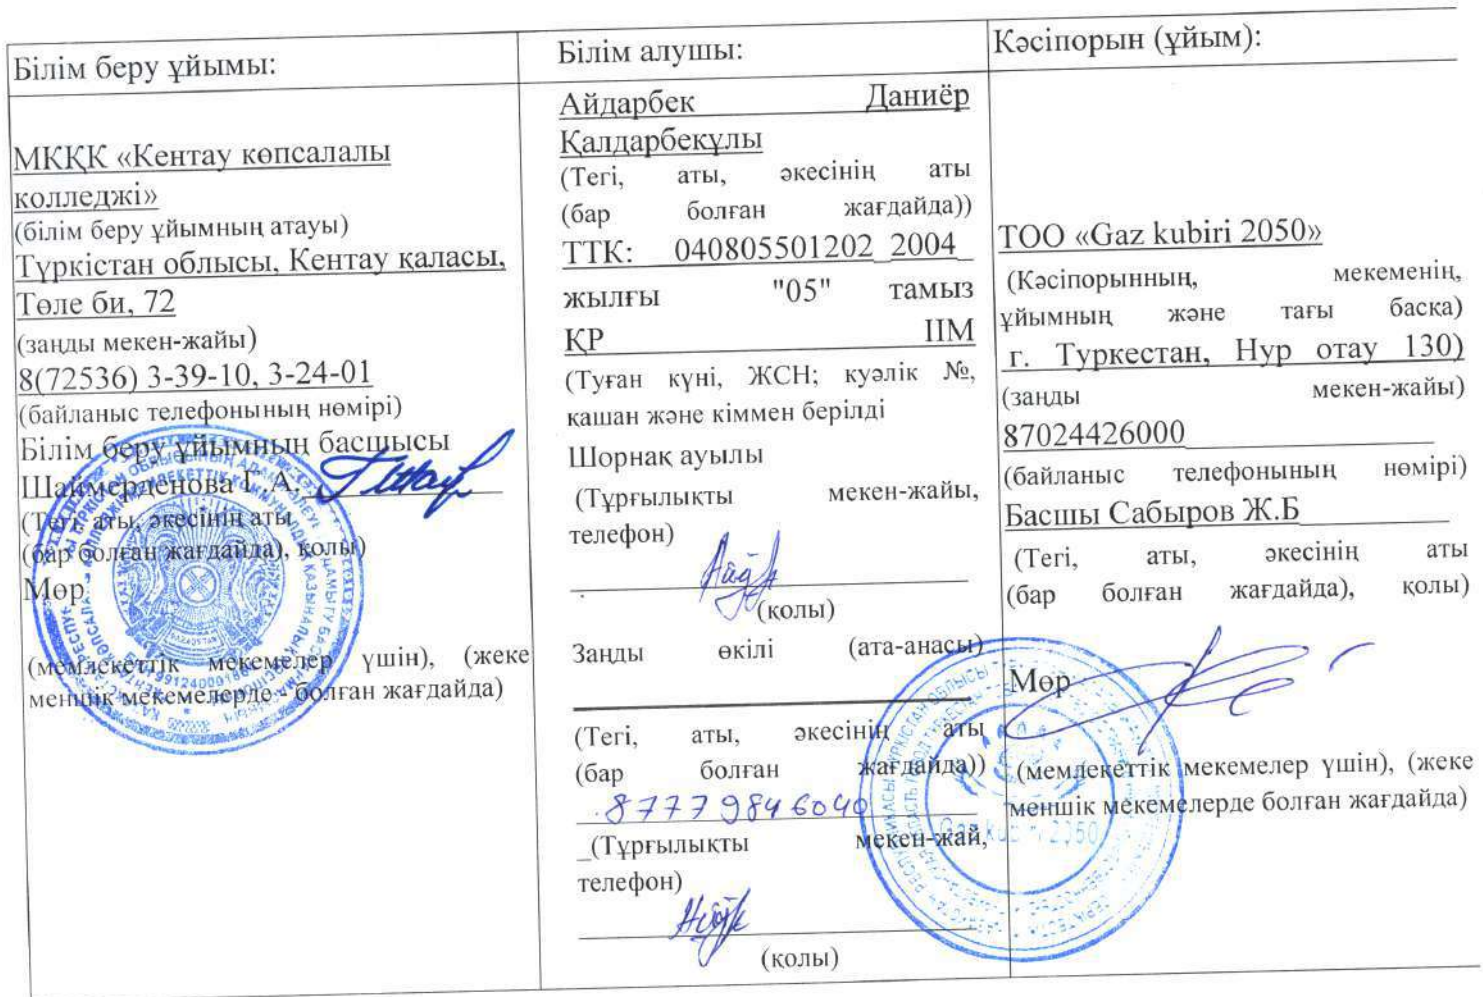 Білім беру ұйымы:
МКҚК «Кентау көпсалалы
колледжі»
(білім беру ұйымның атауы)
Түркістан облысы, Кентау қаласы,
Төле би, 72
(заңды мекен-жайы)
8(72536) 3-39-10, 3-24-01
(байланыс телефонының нөмірі)
Білім беру ұйымның басшысы
Шаймерденова Г.А.
(Тегі, аты, әкесінің аты
(бар болған жағдайда), қолы)
Мөр
(мемлекеттік мекемелер үшін), (жеке
меншік мекемелерде - болған жағдайда)
Білім алушы:
Айдарбек Даниёр
Қалдарбекұлы
(Тегі, аты, әкесінің аты
(бар болған жағдайда))
ТТК: 040805501202_2004_
жылғы "05" тамыз
ҚР ІІМ
(Туған күні, ЖСН; куәлік №,
қашан және кіммен берілді
Шорнақ ауылы
(Тұрғылықты мекен-жайы,
телефон)
(қолы)
Заңды өкілі (ата-анасы)
(Тегі, аты, әкесінің аты
(бар болған жағдайда))
87779846040
_(Тұрғылықты мекен-жай,
телефон)
(қолы)
Кәсіпорын (ұйым):
ТОО «Gaz kubiri 2050»
(Кәсіпорынның, мекеменің,
ұйымның және тағы басқа)
г. Туркестан, Нур отау 130)
(заңды мекен-жайы)
87024426000
(байланыс телефонының нөмірі)
Басшы Сабыров Ж.Б
(Тегі, аты, әкесінің аты
(бар болған жағдайда), қолы)
Мөр
(мемлекеттік мекемелер үшін), (жеке
меншік мекемелерде болған жағдайда)
Gaz kubiri 2050